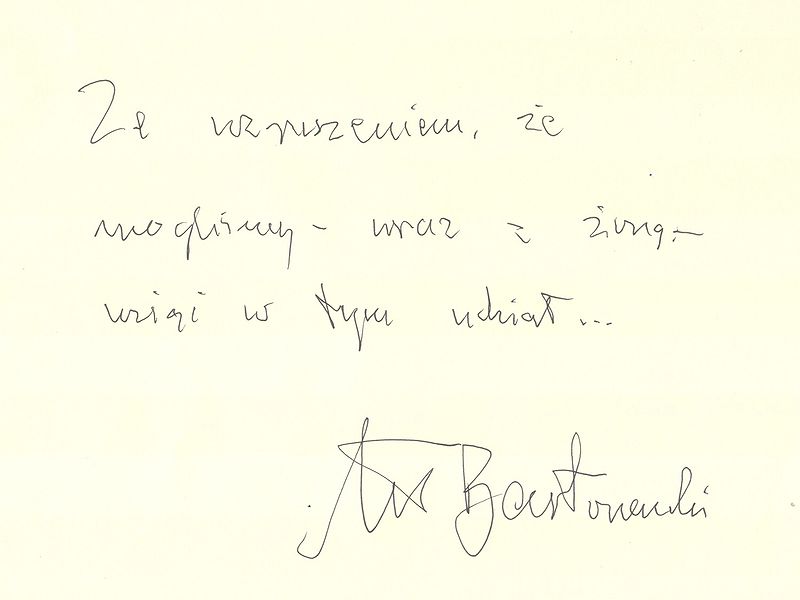 Ze wzruszeniem, że
mogliśmy – wraz z żoną –
wziąć w tym udział...
Bartoszewski